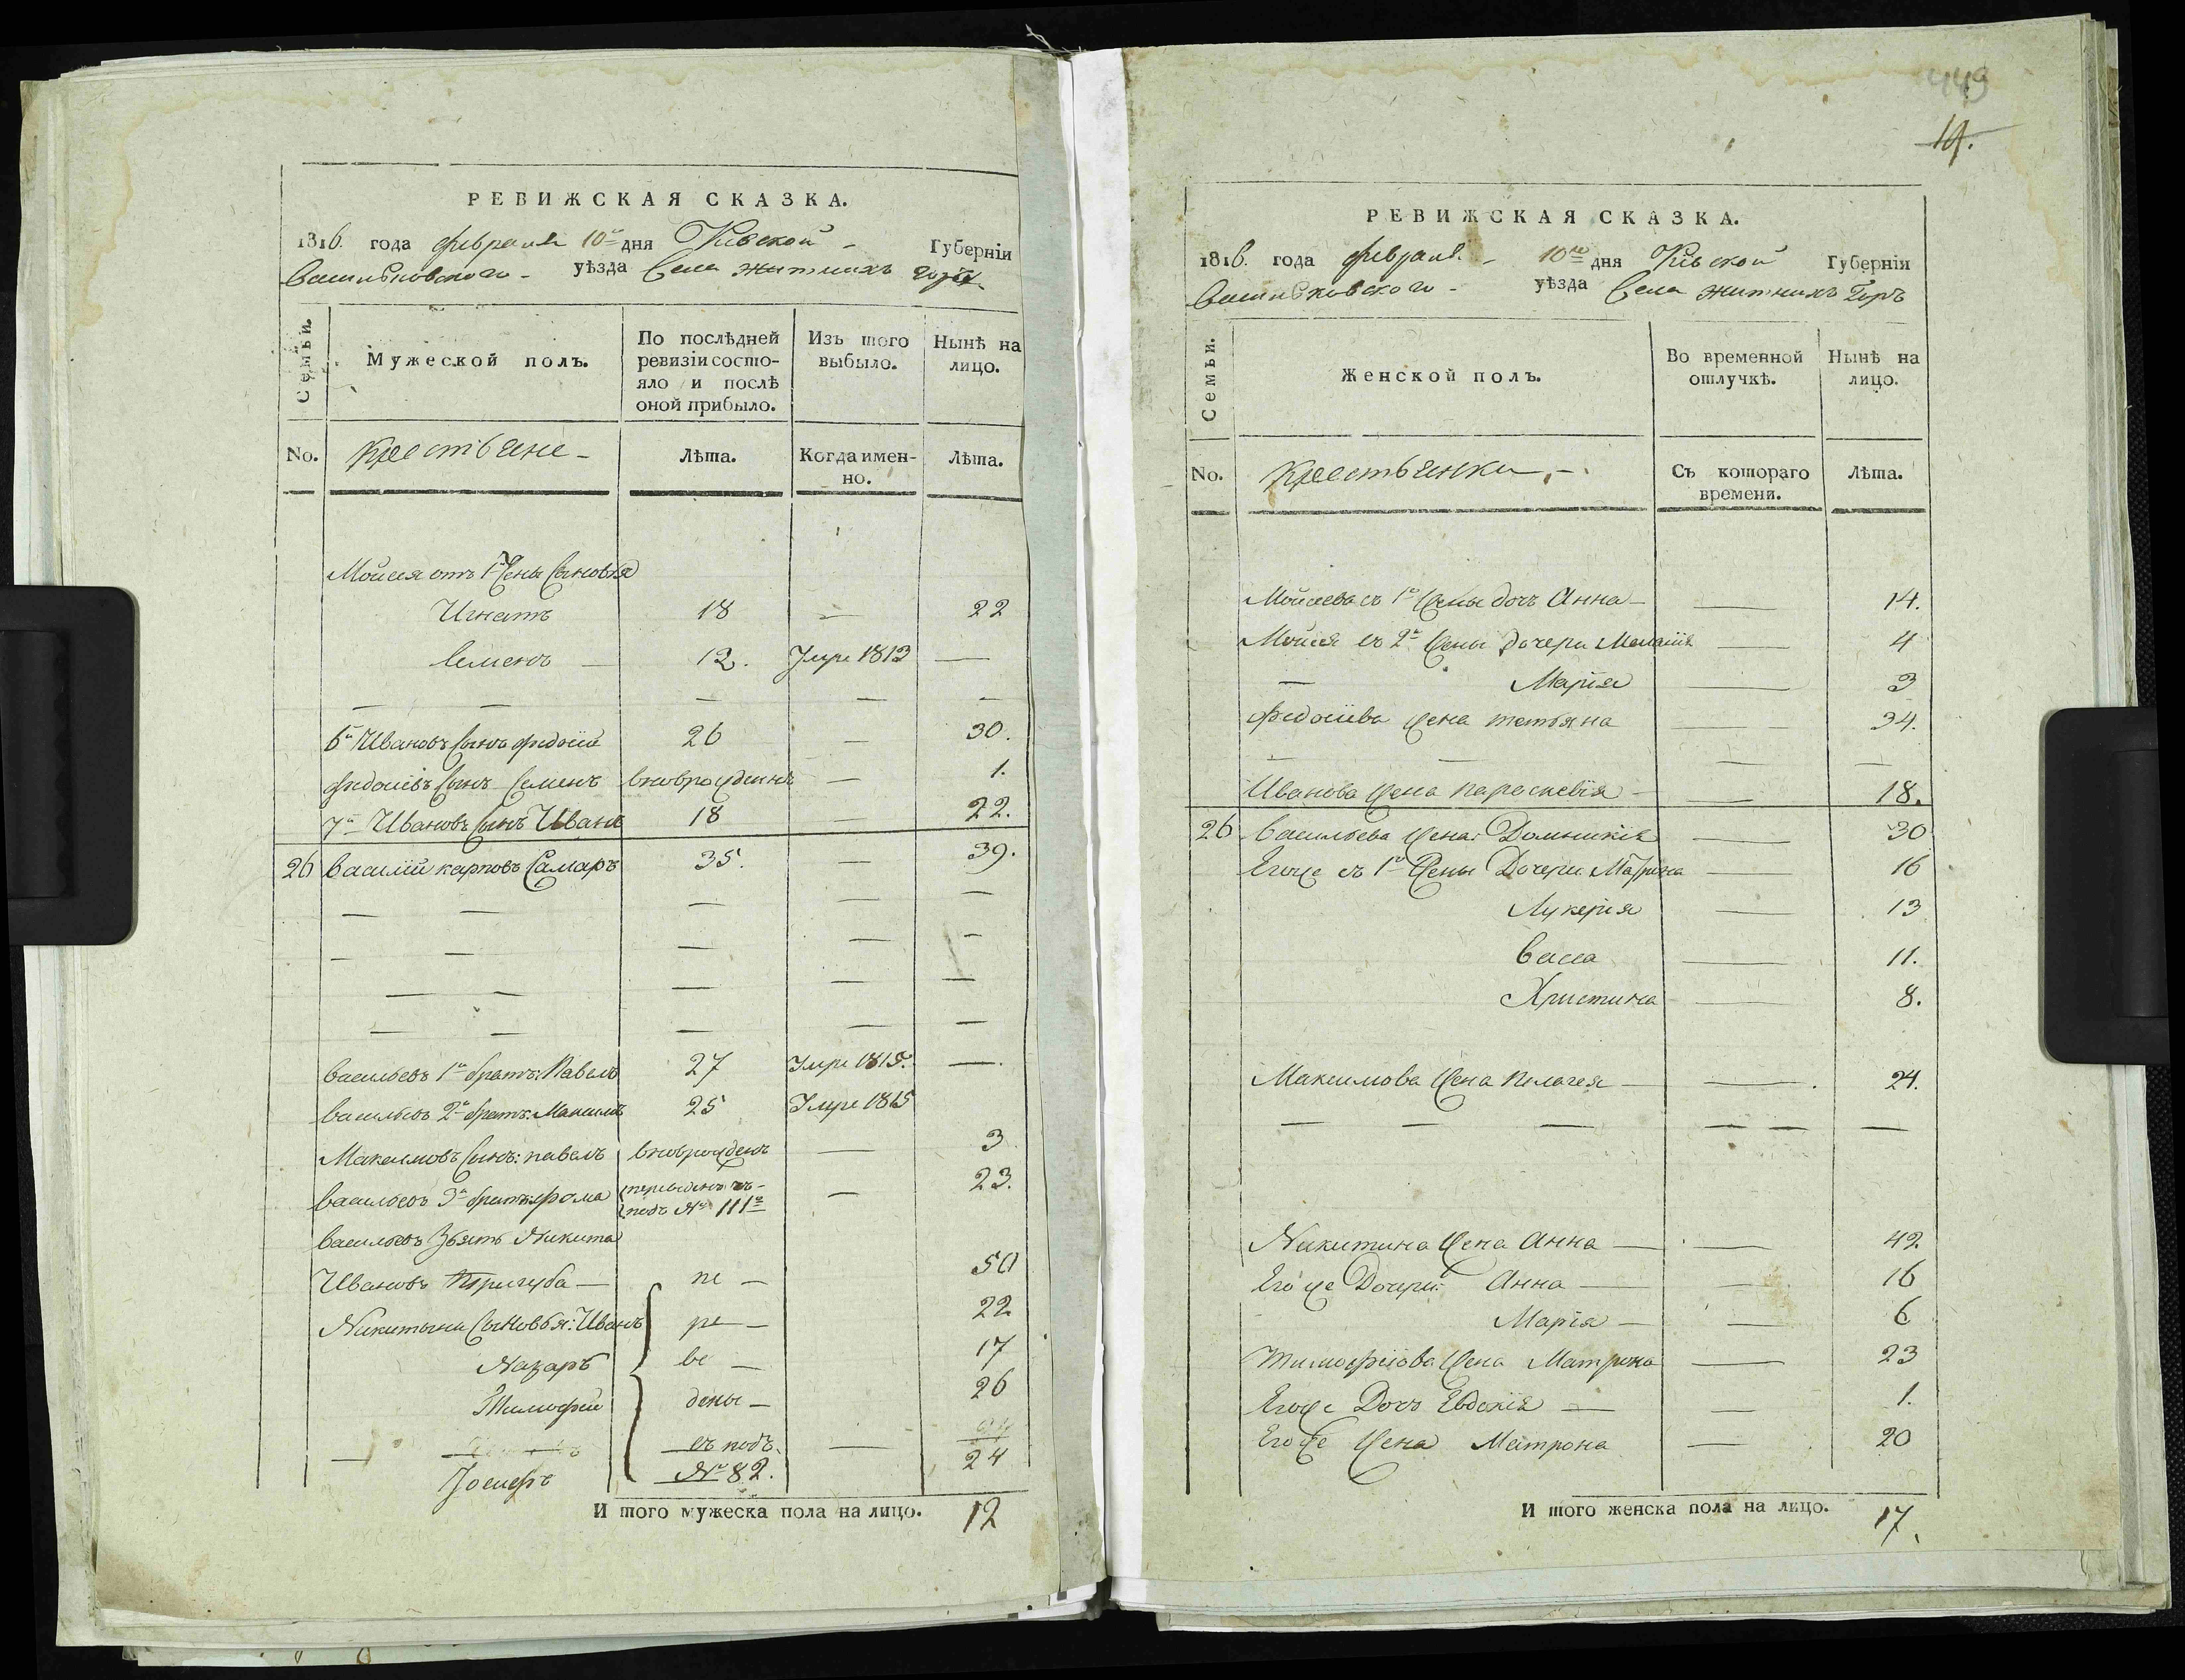 РЕВИЖСКАЯ СКАЗКА.
1816. года февраля 10го дня Кіевской Губерніи
Васильковского уѣзда Села Житнихъ Горъ
Семьи. Мужеской полъ. По послѣдней ревизіи состояло и послѣ оной прибыло. Изъ того выбыло. Нынѣ на лицо.
No. Крестьяне Лѣта. Когда именно. Лѣта.
Мойсея отъ 1й жены сыновья
Игнатъ 18 — 22
Семенъ — 12. Умре 1813 —
— — — — —
6й Ивановъ сынъ Федосій 26 — 30.
Федосіевъ сынъ Семенъ вновърожденъ — 1.
7й Ивановъ сынъ Иванъ 18 — 22.
26 Василій Карповъ Самаръ 35. — 39.
— — — — —
— — — — —
— — — — —
— — — — —
Васильевъ 1й братъ: Павелъ 27 Умре 1815. —
Васильевъ 2й братъ: Максимъ 25 Умре 1815
Максимовъ сынъ: Павелъ вновърожденъ — 3
Васильевъ 3й братъ: Фома переведенъ съ подъ № 111го — 23.
Васильевъ Зять Никита
Ивановъ Пригуба — пе — 50
Никитины сыновья: Иванъ ре — 22
Назаръ ве — 17
Тимофей дены — 26
съ подъ —
Іосифъ № 82. 24
И того мужеска пола на лицо. 12
449
14.
РЕВИЖСКАЯ СКАЗКА.
1816. года феврал. 10го дня Кіевской Губернія
Васильковского уѣзда Села Житнихъ Горъ
Семьи. Женской полъ. Во временной отлучкѣ. Нынѣ на лицо.
No. Крестьянки Съ котораго времени. Лѣта.
Мойсеева съ 1й жены дочь Анна — — 14.
Мойсея съ 2й жены дочери Меланія — 4
— Марія — 3
Федосіева жена Татьяна — 34.
— — — —
Иванова жена Параскевія — — 18.
26 Васильева жена: Домникія — 30
Егоже съ 1й жены Дочери Матрона — 16
Лукерія — 13
Васса — 11.
Христина — 8.
Максимова жена Пелагея — — 24.
— — — — — —
Никитина жена Анна — — 42
Егоже Дочери: Анна — — 16
Марія — — 6
Тимофіева жена Матрона — 23
Егоже Дочъ Евдокія — — 1.
Егоже жена Матрона — 20
И того женска пола на лицо. 17.